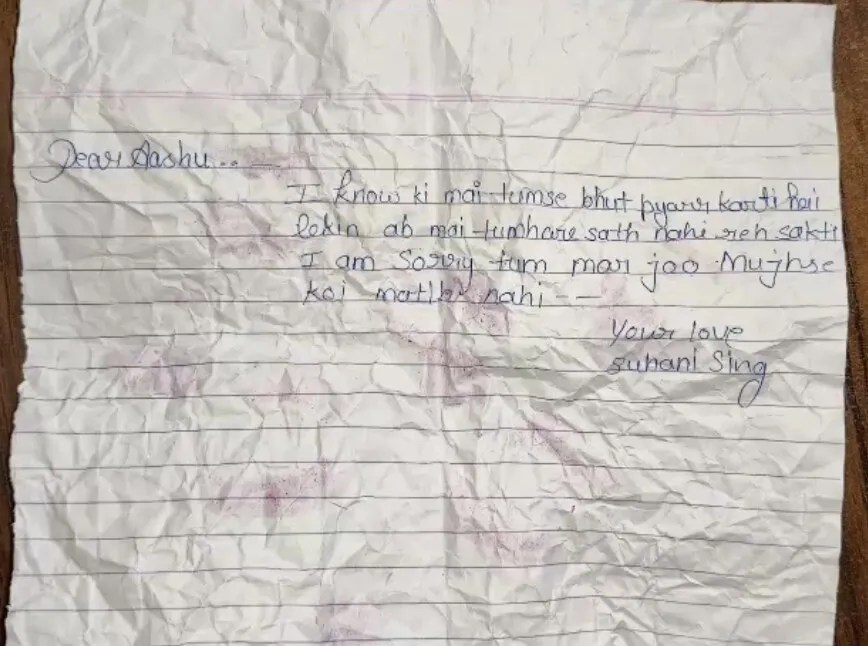 Dear Aashu.. —
I know ki mai tumse bhut pyarr karti hai
lekin ab mai tumhare sath nahi reh sakti
I am Sorry tum mar jao Mujhse
koi matlb nahi - -
Your love
Suhani Sing